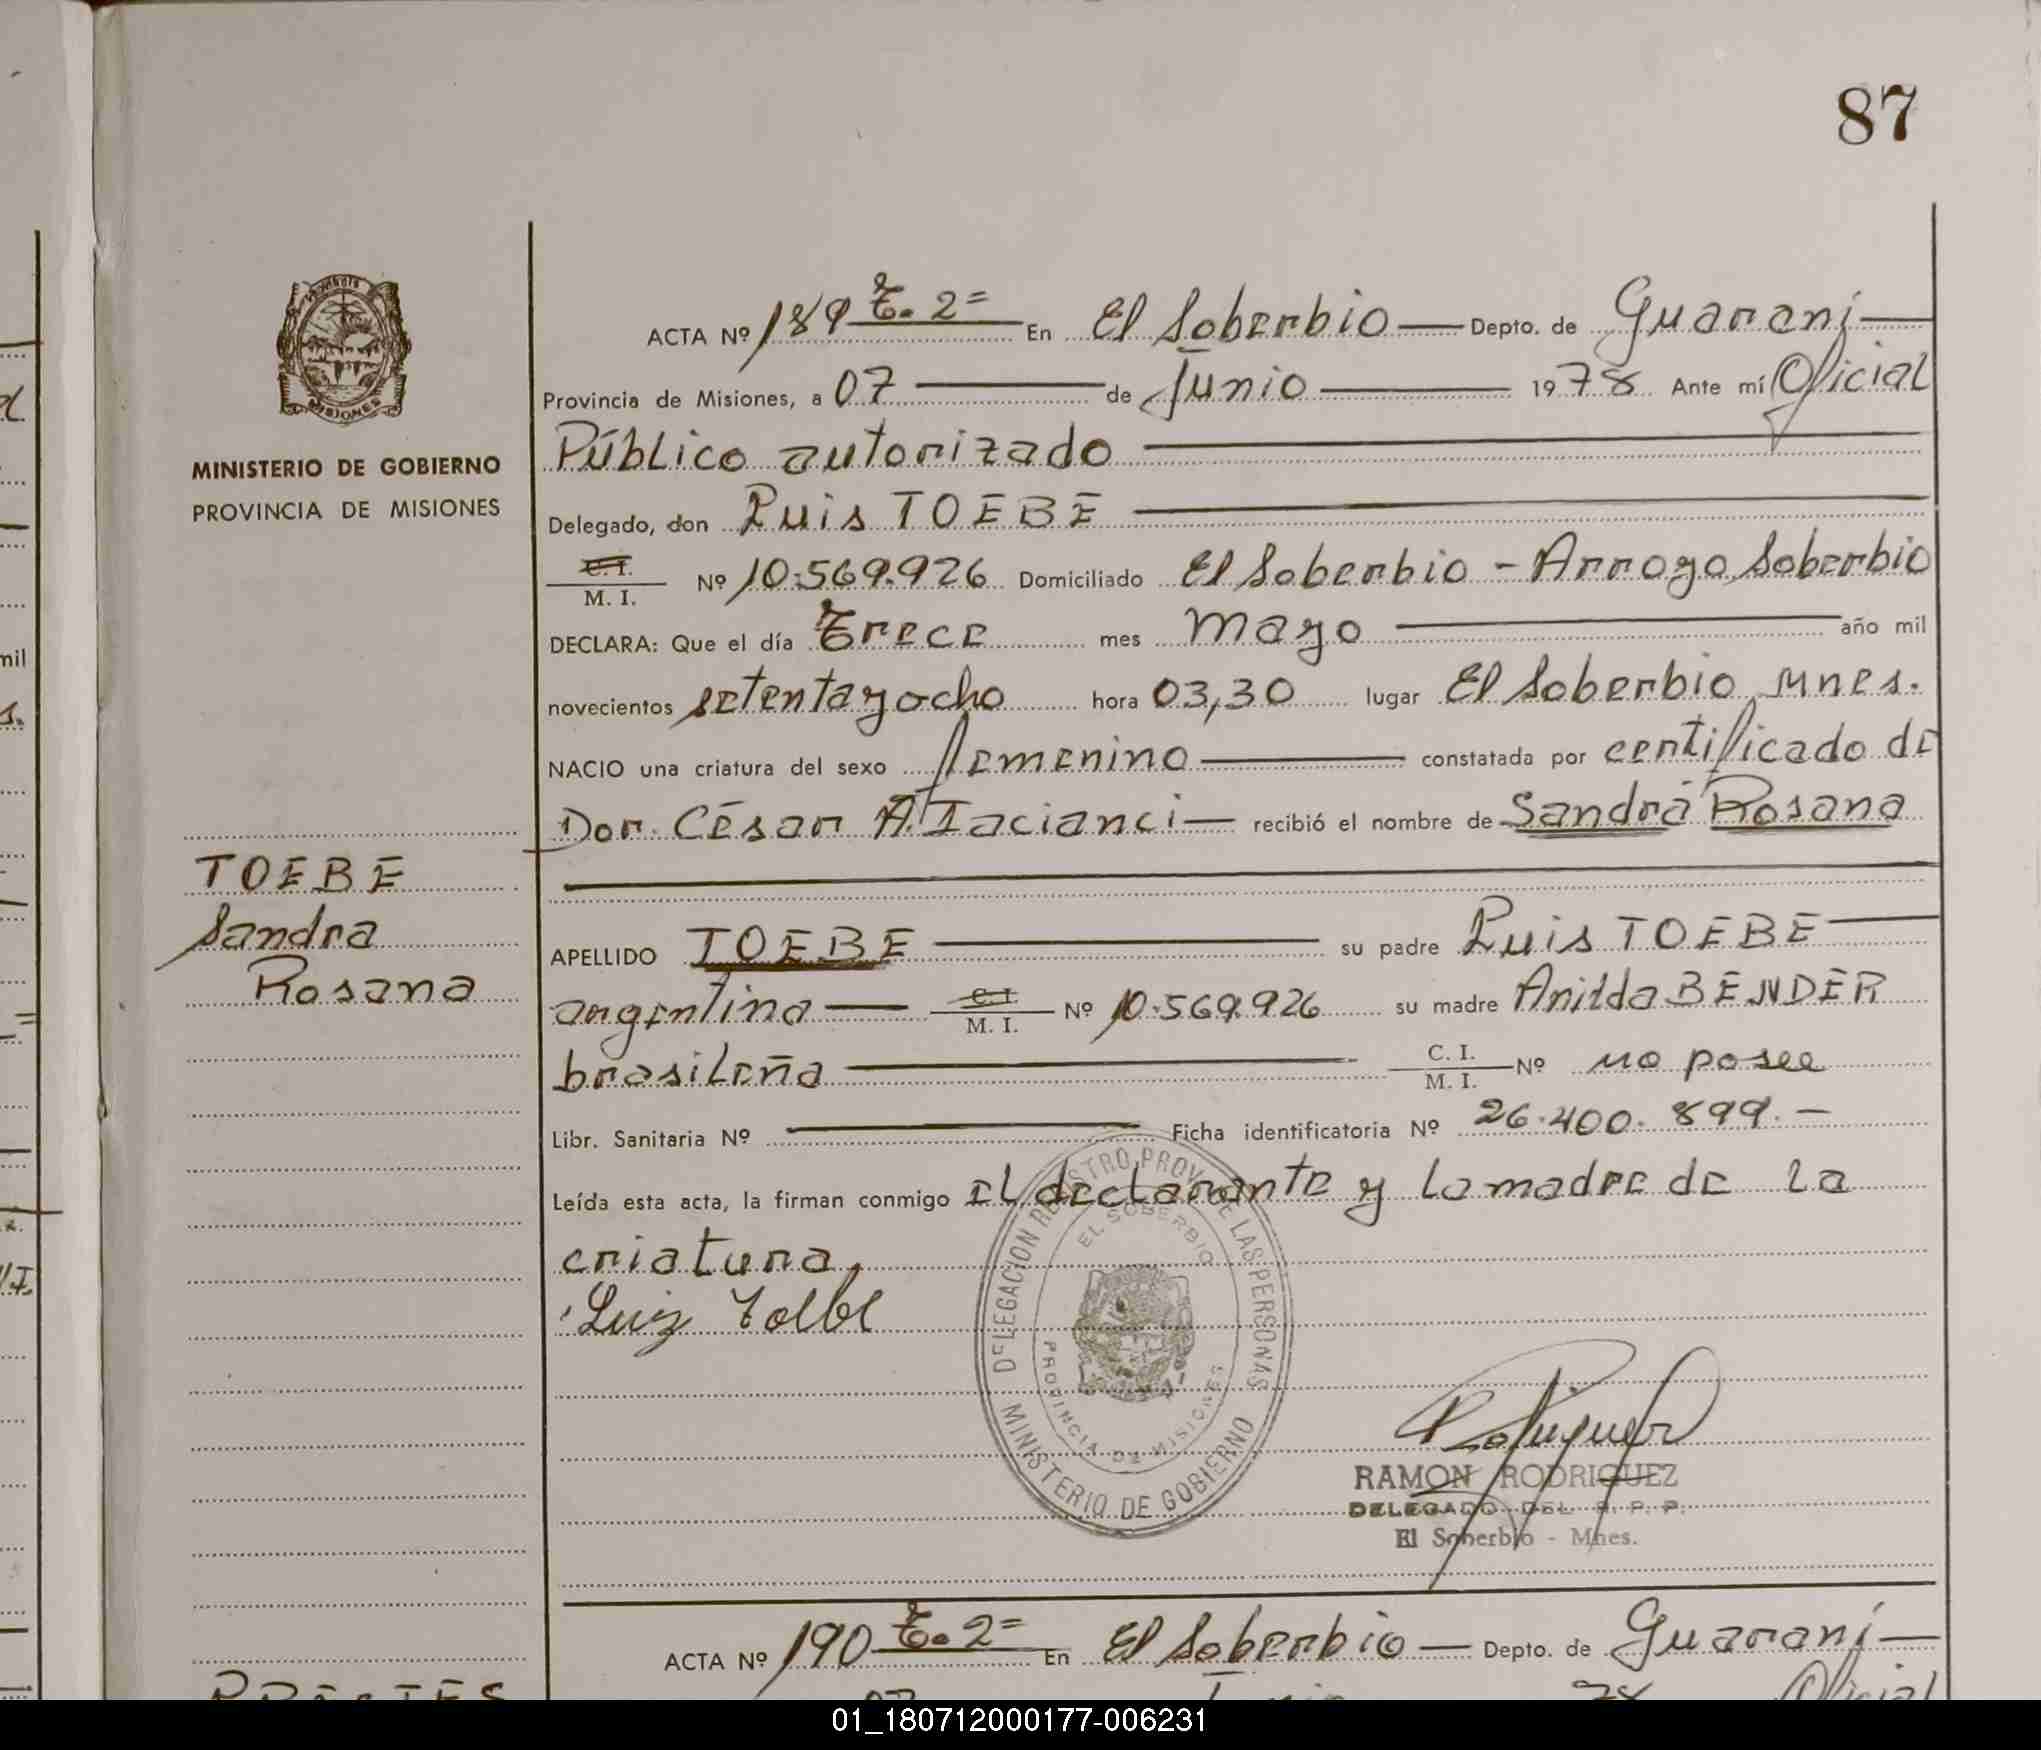 87
MISIONES
MINISTERIO DE GOBIERNO
PROVINCIA DE MISIONES
TOEBE
Sandra
Rosana
ACTA Nº 189 T. 2= En El Soberbio — Depto. de Guaraní —
Provincia de Misiones, a 07 — de Junio — 1978 Ante mí Oficial
Público autorizado
Delegado, don Luis TOEBE
C. I. / M. I. Nº 10.569.926 Domiciliado El Soberbio - Arroyo Soberbio
DECLARA: Que el día Trece mes Mayo — año mil
novecientos setenta y ocho hora 03,30 lugar El Soberbio Mnes.
NACIO una criatura del sexo femenino — constatada por certificado de
Dor. César A. Iacianci — recibió el nombre de Sandra Rosana
APELLIDO TOEBE — su padre Luis TOEBE —
argentino — C. I. / M. I. Nº 10.569.926 su madre Anilda BENDER
brasileña — C. I. / M. I. Nº no posee
Libr. Sanitaria Nº — Ficha identificatoria Nº 26.400.899.-
Leída esta acta, la firman conmigo el declarante y la madre de la
criatura.
Luiz Toebe
DELEGACION REGISTRO PROV. DE LAS PERSONAS
EL SOBERBIO
PROVINCIA DE MISIONES
MINISTERIO DE GOBIERNO
RAMON RODRIGUEZ
DELEGADO DEL R. P. P.
El Soberbio - Mnes.
ACTA Nº 190 T. 2= En El Soberbio — Depto. de Guaraní —
01_180712000177-006231